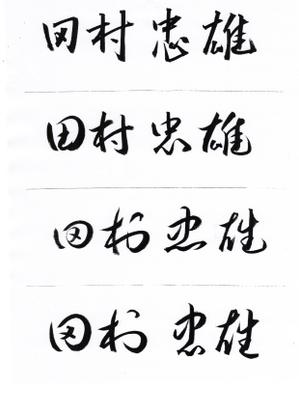 田村忠雄
田村忠雄
田村忠雄
田村忠雄